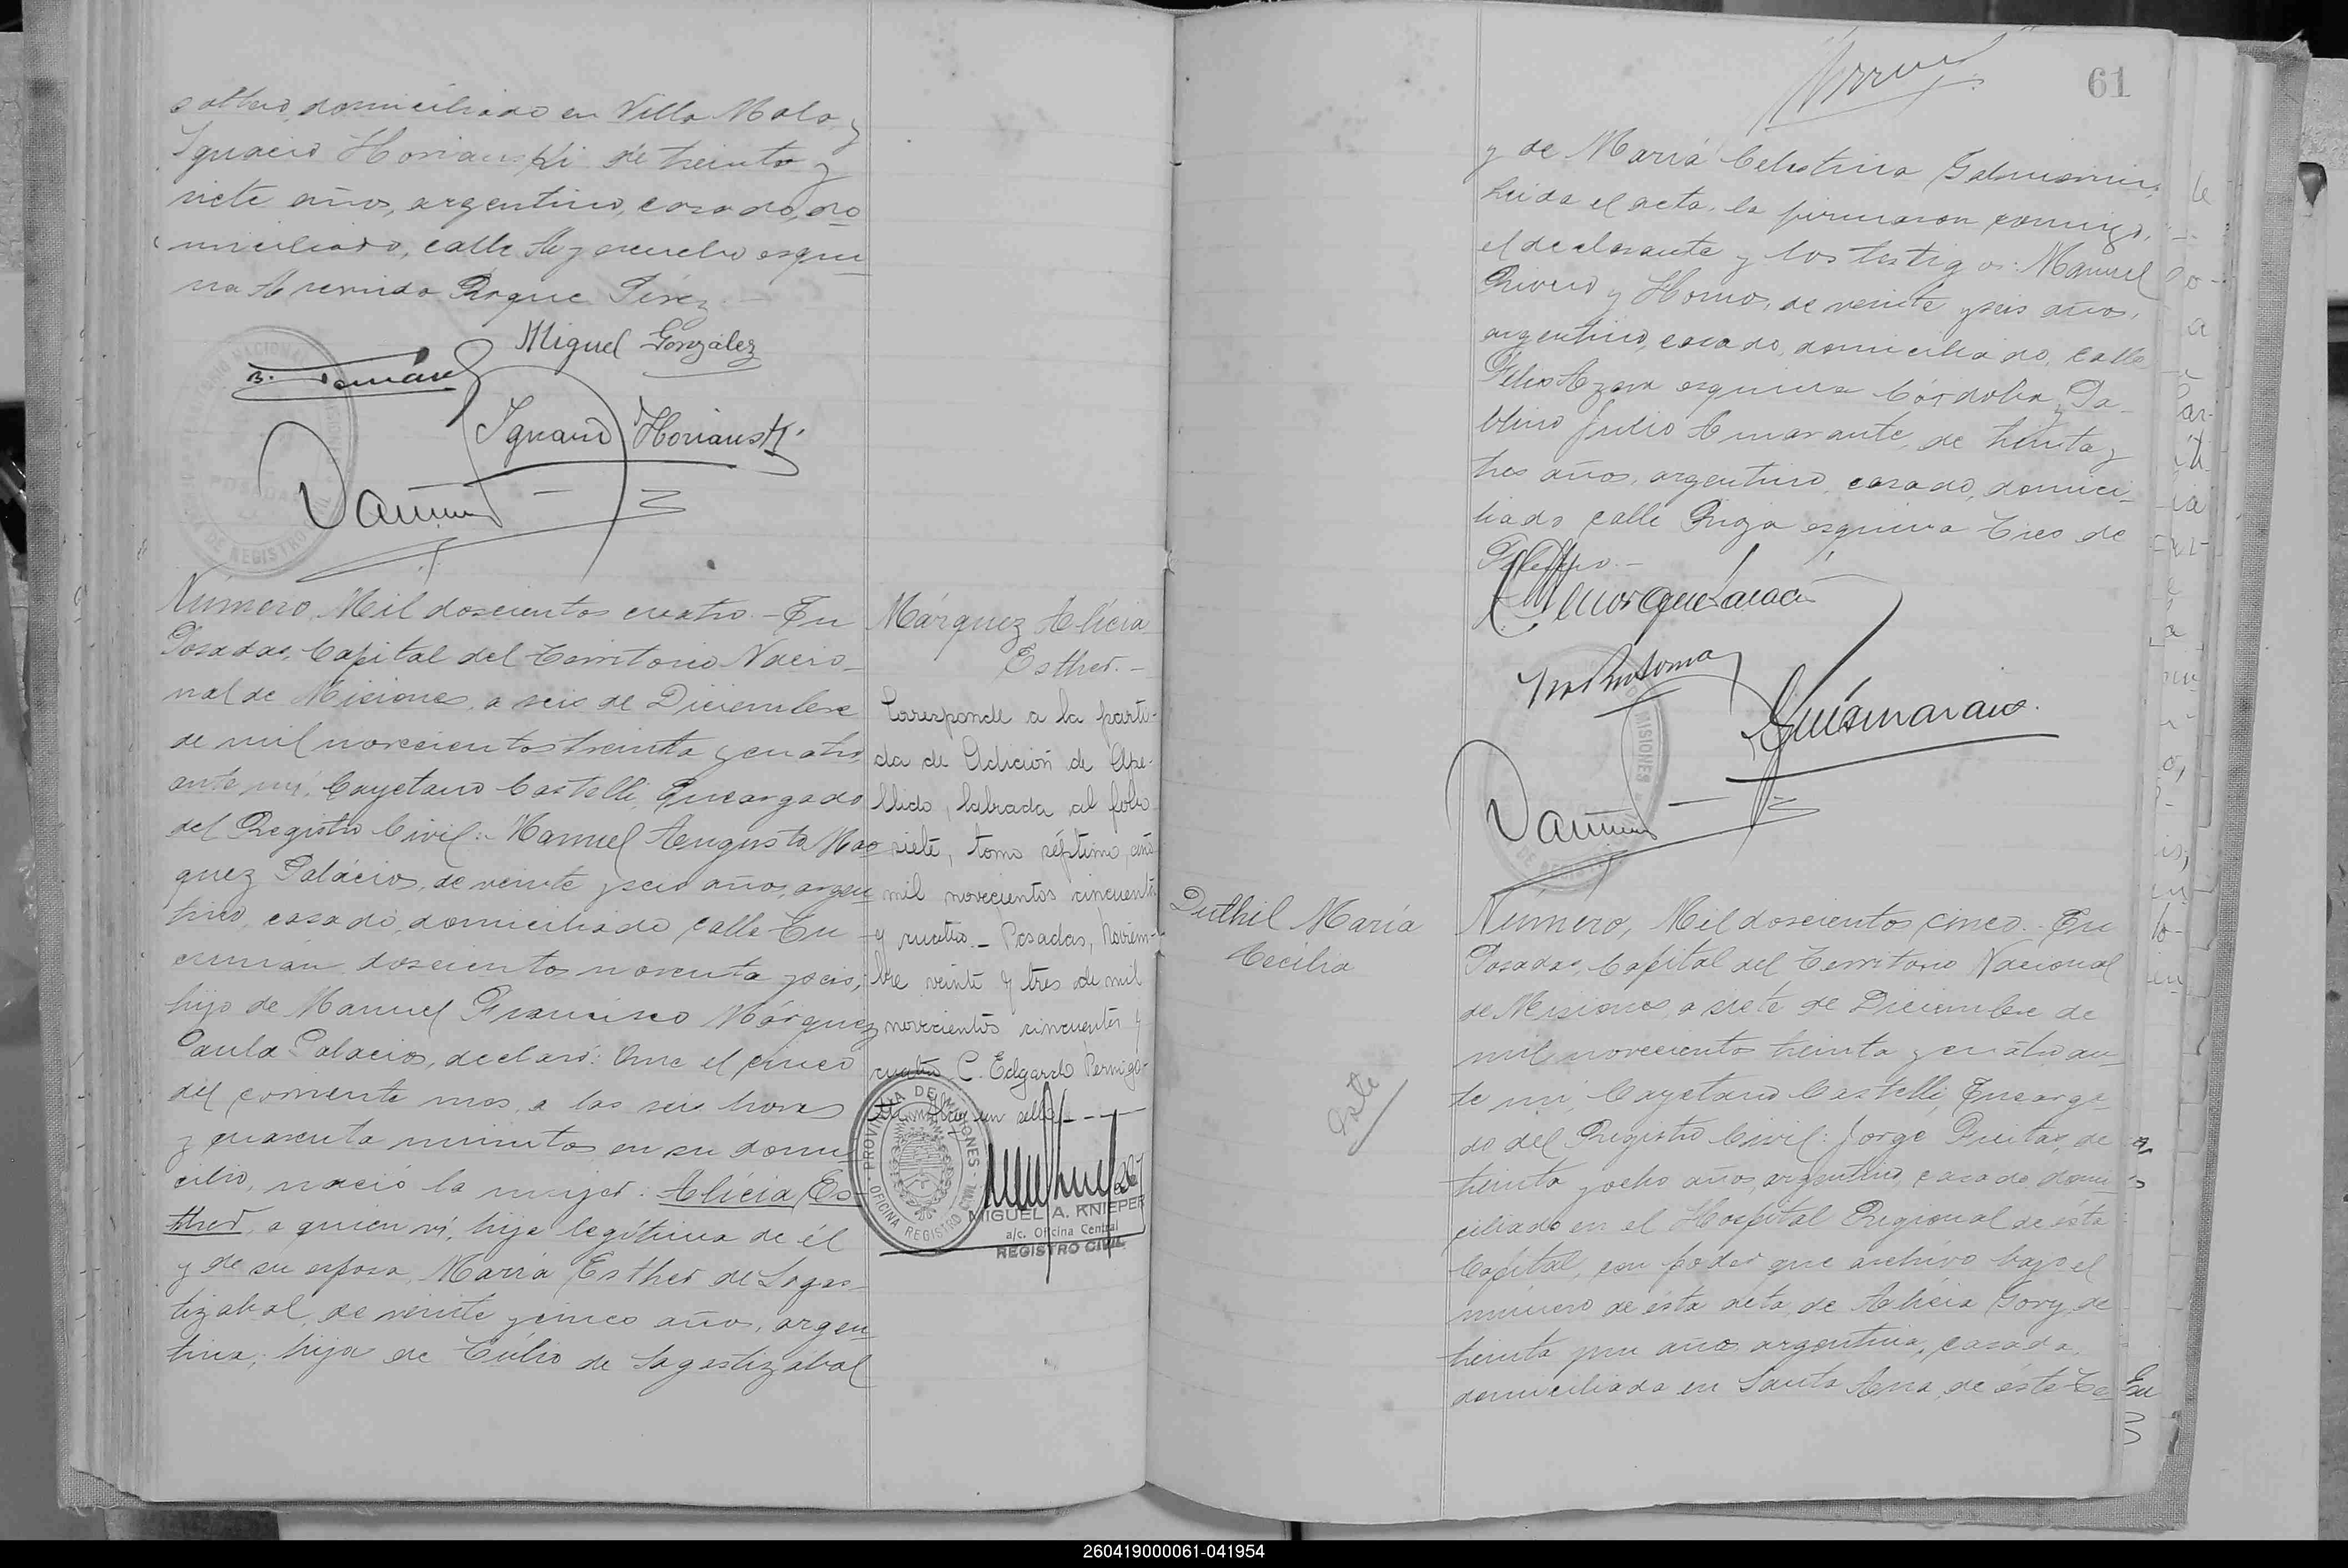 soltero, domiciliado en Villa Mola, y
Ignacio Horianski de treinta y
siete años, argentino, casado, do
miciliado, calle Ayacucho esqui
na Avenida Roque Pérez.
Miguel González
Ignacio Horianski
Número, Mil doscientos cuatro.- En
Posadas, Capital del Territorio Nacio-
nal de Misiones, a seis de Diciembre
de mil novecientos treinta y cuatro,
ante mí, Cayetano Castelli, Encargado
del Registro Civil: Manuel Augusto Már
quez Palacios, de veinte y seis años, argen
tino, casado, domiciliado calle Tu
cumán doscientos noventa y seis,
hijo de Manuel Francisco Márquez
Paula Palacios, declaró: Que el cinco
del corriente mes, a las seis horas
y cuarenta minutos en su domi
cilio, nació la mujer: Alicia Es-
ther, a quien ví, hija legítima de él
y de su esposa, María Esther de Sagas-
tizabal, de veinte y cinco años, argen
tina, hija de Tulio de Sagastizábal
Márquez Alicia
Esther.-
Corresponde a la parti-
da de Adición de Ape-
llido, labrada al folio
siete, tomo séptimo, año
mil novecientos cincuenta
y cuatro.- Posadas, Noviem-
bre veinte y tres de mil
novecientos cincuenta y
cuatro C. Edgardo
Hay un sello
PROVINCIA DE MISIONES
OFICINA REGISTRO CIVIL
MIGUEL A. KNIEPER
a/c. Oficina Central
REGISTRO CIVIL
61
y de María Celestina
Leída el acta, la firmaron conmigo,
el declarante y los testigos: Manuel
Rivero y Hornos, de veinte y seis años,
argentino, casado, domiciliado, calle
Felix Azara esquina Córdoba, y Pa-
blino Julio Amarante, de treinta y
tres años, argentino, casado, domici-
liado calle Rioja esquina Tres de
Febrero.-
Duthil María
Cecilia
Número, Mil doscientos cinco.- En
Posadas, Capital del Territorio Nacional
de Misiones, a siete de Diciembre de
mil novecientos treinta y cuatro an-
te mí Cayetano Castelli, Encarga-
do del Registro Civil: Jorge Freitas, de
treinta y ocho años, argentino, casado, domi-
ciliado en el Hospital Regional de ésta
Capital, con poder que archivo bajo el
número de ésta acta, de Alicia Gory, de
treinta y un años, argentina, casada,
domiciliada en Santa Ana, de éste Te-
260419000061-041954